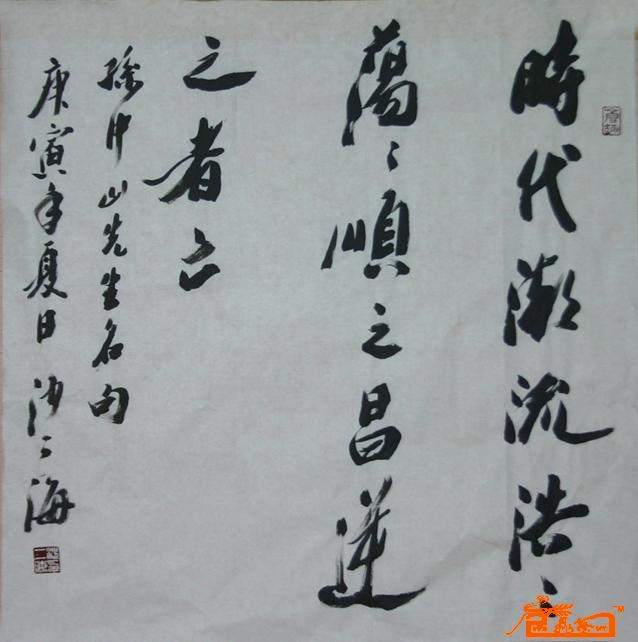 時代潮流浩〻
蕩〻順之昌逆
之者亡
孫中山先生名句
庚寅年夏日沙〻海